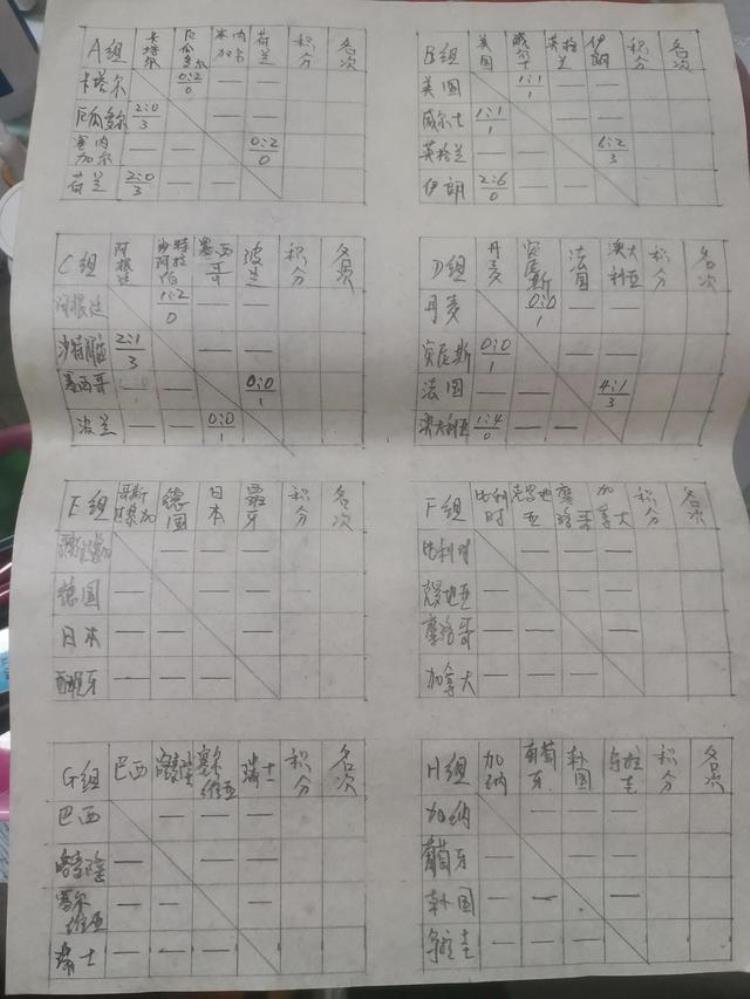 A组 卡塔尔 厄瓜多尔 塞内加尔 荷兰 积分 名次
卡塔尔 0:2/0 — —
厄瓜多尔 2:0/3 — —
塞内加尔 — — 0:2/0
荷兰 2:0/3 — —
B组 美国 威尔士 英格兰 伊朗 积分 名次
美国 1:1/1 — —
威尔士 1:1/1 — —
英格兰 — — 6:2/3
伊朗 2:6/0 — —
C组 阿根廷 沙特阿拉伯 墨西哥 波兰 积分 名次
阿根廷 1:2/0 — —
沙特阿拉伯 2:1/3 — —
墨西哥 — — 0:0/1
波兰 — — 0:0/1
D组 丹麦 突尼斯 法国 澳大利亚 积分 名次
丹麦 0:0/1 — —
突尼斯 0:0/1 — —
法国 — — 4:1/3
澳大利亚 1:4/0 — —
E组 哥斯达黎加 德国 日本 西班牙 积分 名次
— — —
德国 — — —
日本 — — —
西班牙 — — —
F组 比利时 克罗地亚 摩洛哥 加拿大 积分 名次
比利时 — — —
克罗地亚 — — —
摩洛哥 — — —
加拿大 — — —
G组 巴西 喀麦隆 塞尔维亚 瑞士 积分 名次
巴西 — — —
喀麦隆 — — —
塞尔维亚 — — —
瑞士 — — —
H组 加纳 葡萄牙 韩国 乌拉圭 积分 名次
加纳 — — —
葡萄牙 — — —
韩国 — — —
乌拉圭 — — —